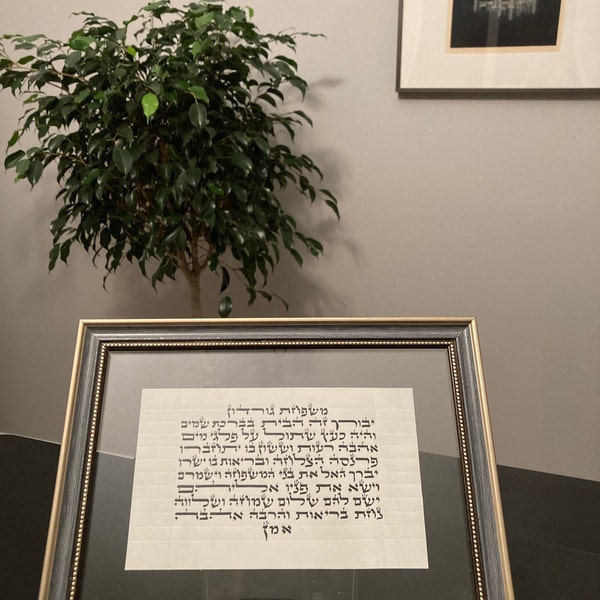 משפחת גורדון
יבורך זה הבית בברכת שמים
והיה כעץ שתול על פלגי מים
אהבה רעות וששון בו יתחברו
פרנסה הצלחה ובריאות בו ישרו
יברך האל את בני המשפחה וישמרם
וישא את פניו אליהם
ישים להם שלום שמחה ושלווה
נחת בריאות והרבה אהבה
אמן